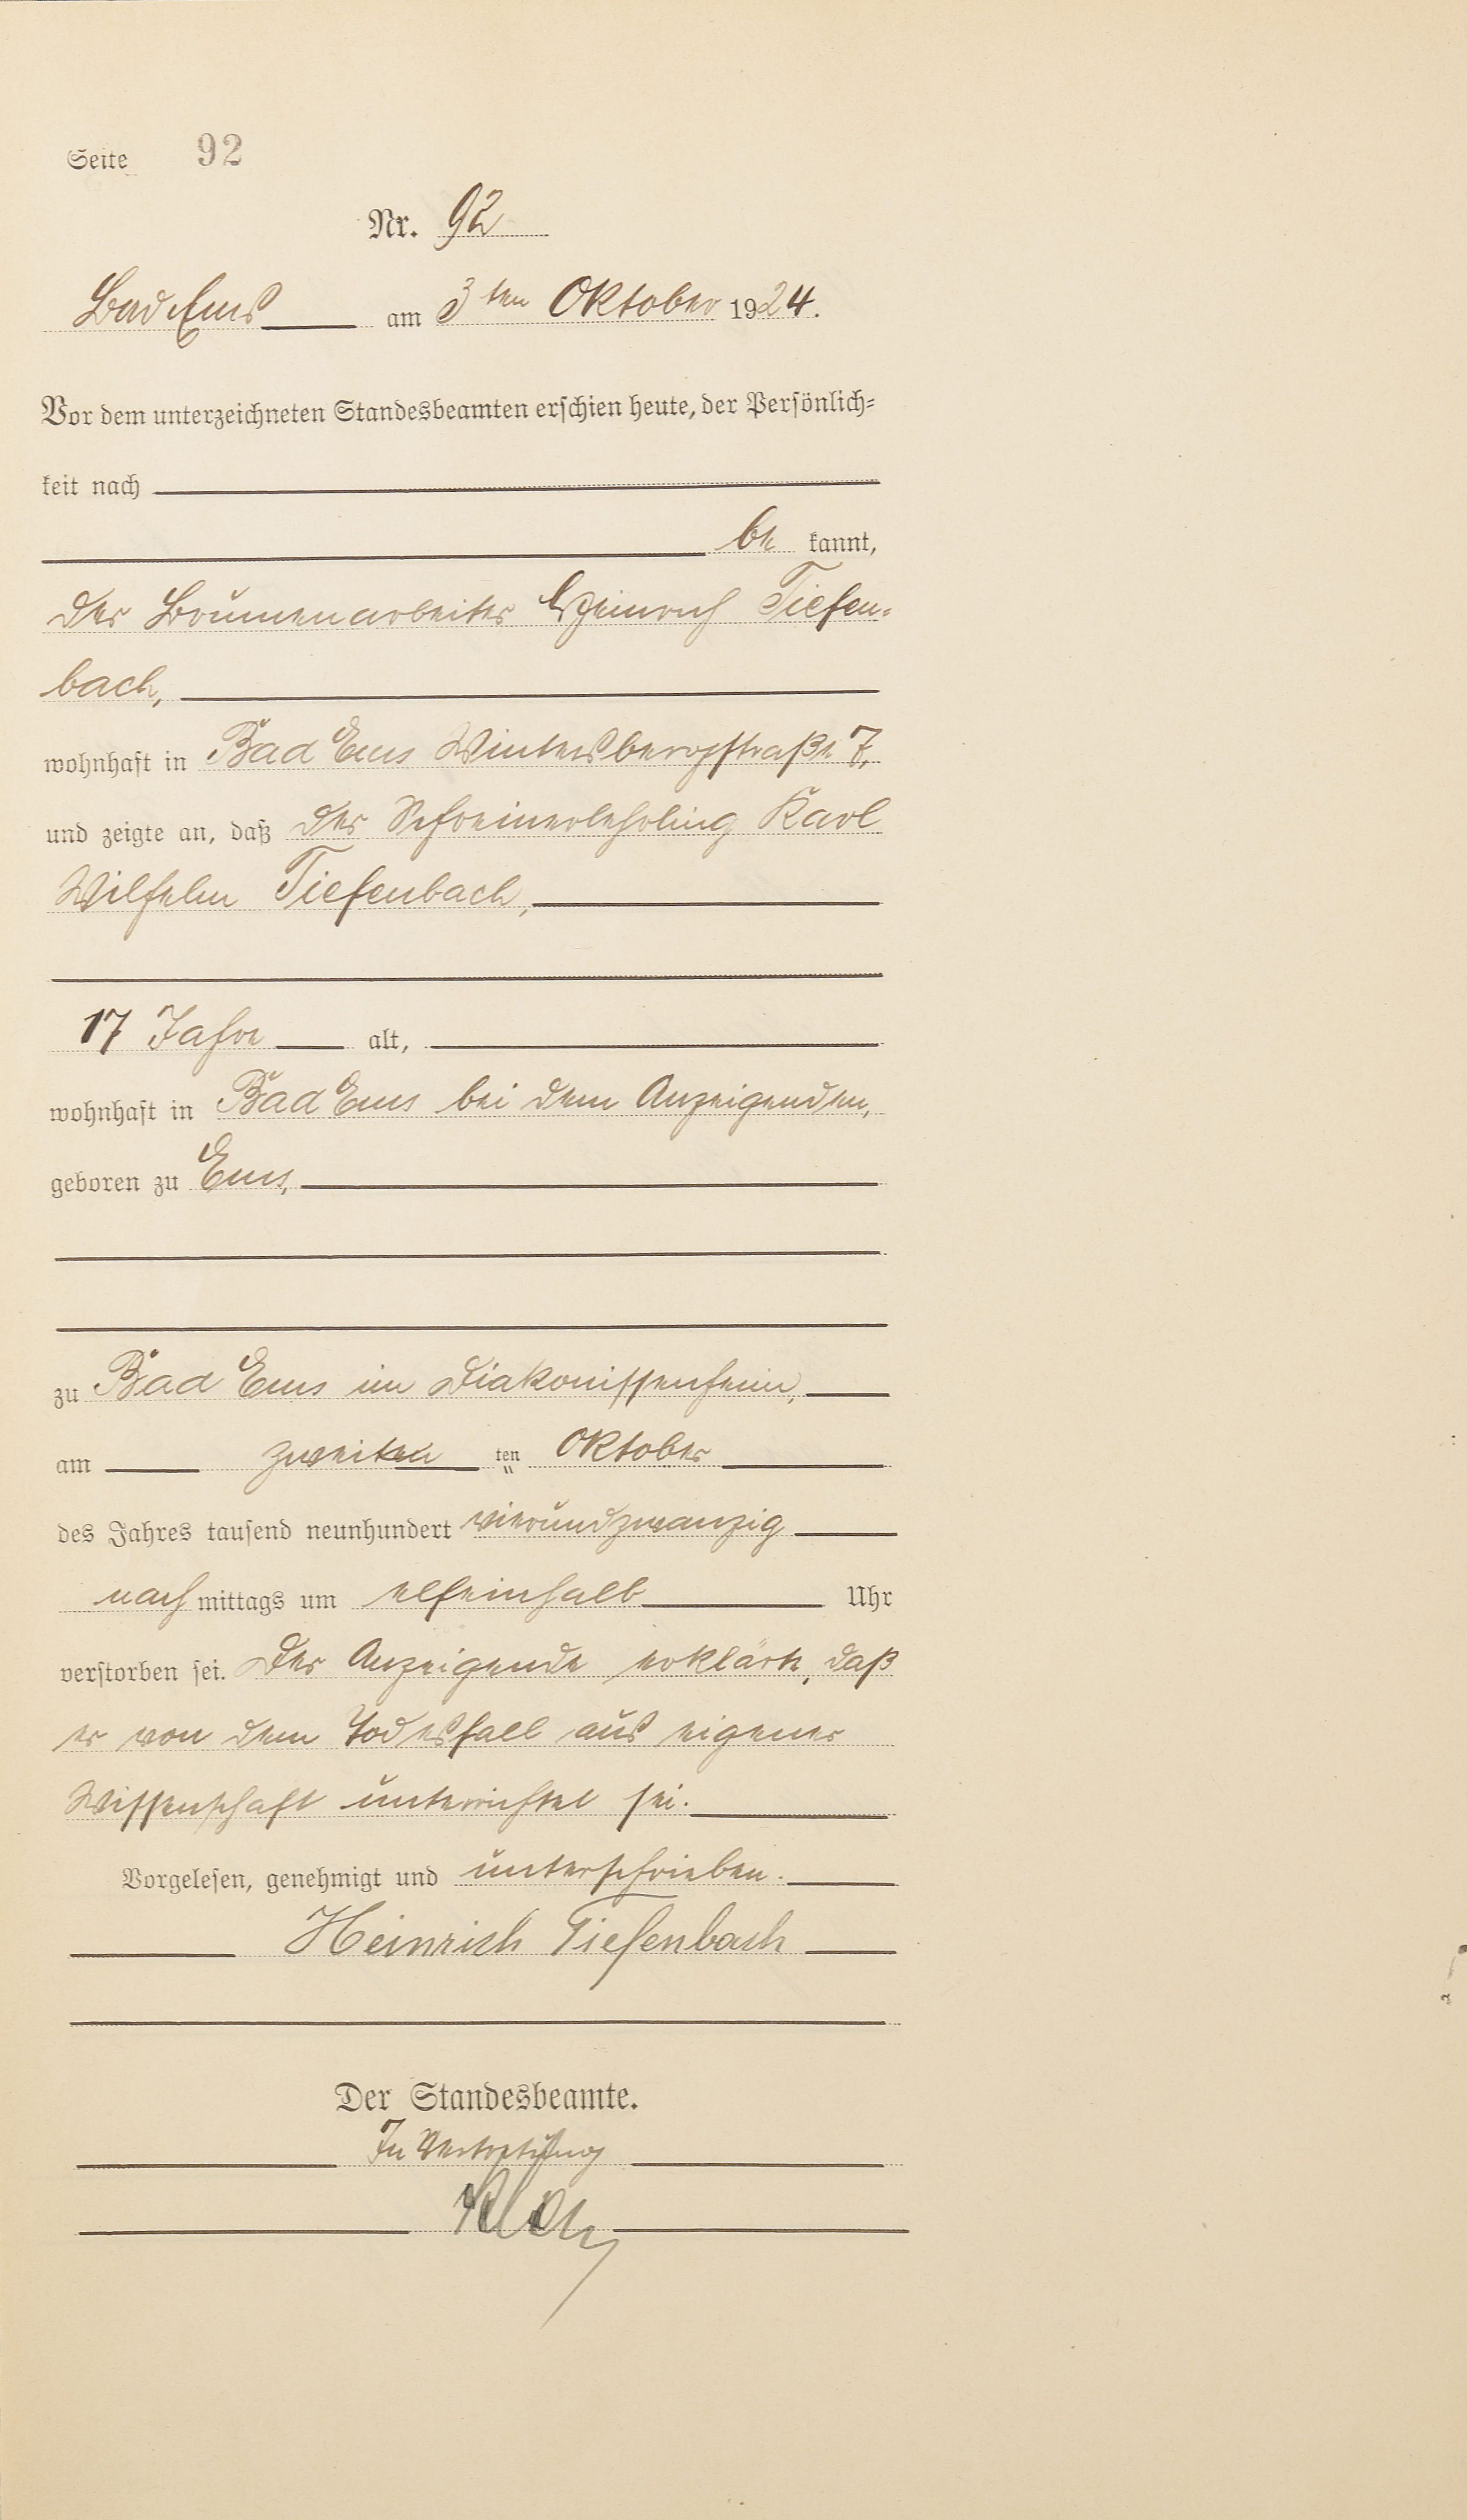 Seite 92
Nr. 92
Bad Ems am 3ten Oktober 1924.
Vor dem unterzeichneten Standesbeamten erschien heute, der Persönlich-
keit nach
be kannt,
der Brunnenarbeiter Heinrich Tiefen-
bach,
wohnhaft in Bad Ems Wintersbergstraße 7,
und zeigte an, daß der Schreinerlehrling Karl
Wilhelm Tiefenbach,
17 Jahre alt,
wohnhaft in Bad Ems bei dem Anzeigenden,
geboren zu Ems,
zu Bad Ems im Diakonissenheim,
am zweiten ten Oktober
des Jahres tausend neunhundert vierundzwanzig
nach mittags um elfeinhalb Uhr
verstorben sei. Der Anzeigende erklärte, daß
er von dem Todesfall aus eigener
Wissenschaft unterrichtet sei.
Vorgelesen, genehmigt und unterschrieben.
Heinrich Tiefenbach
Der Standesbeamte.
In Vertretung